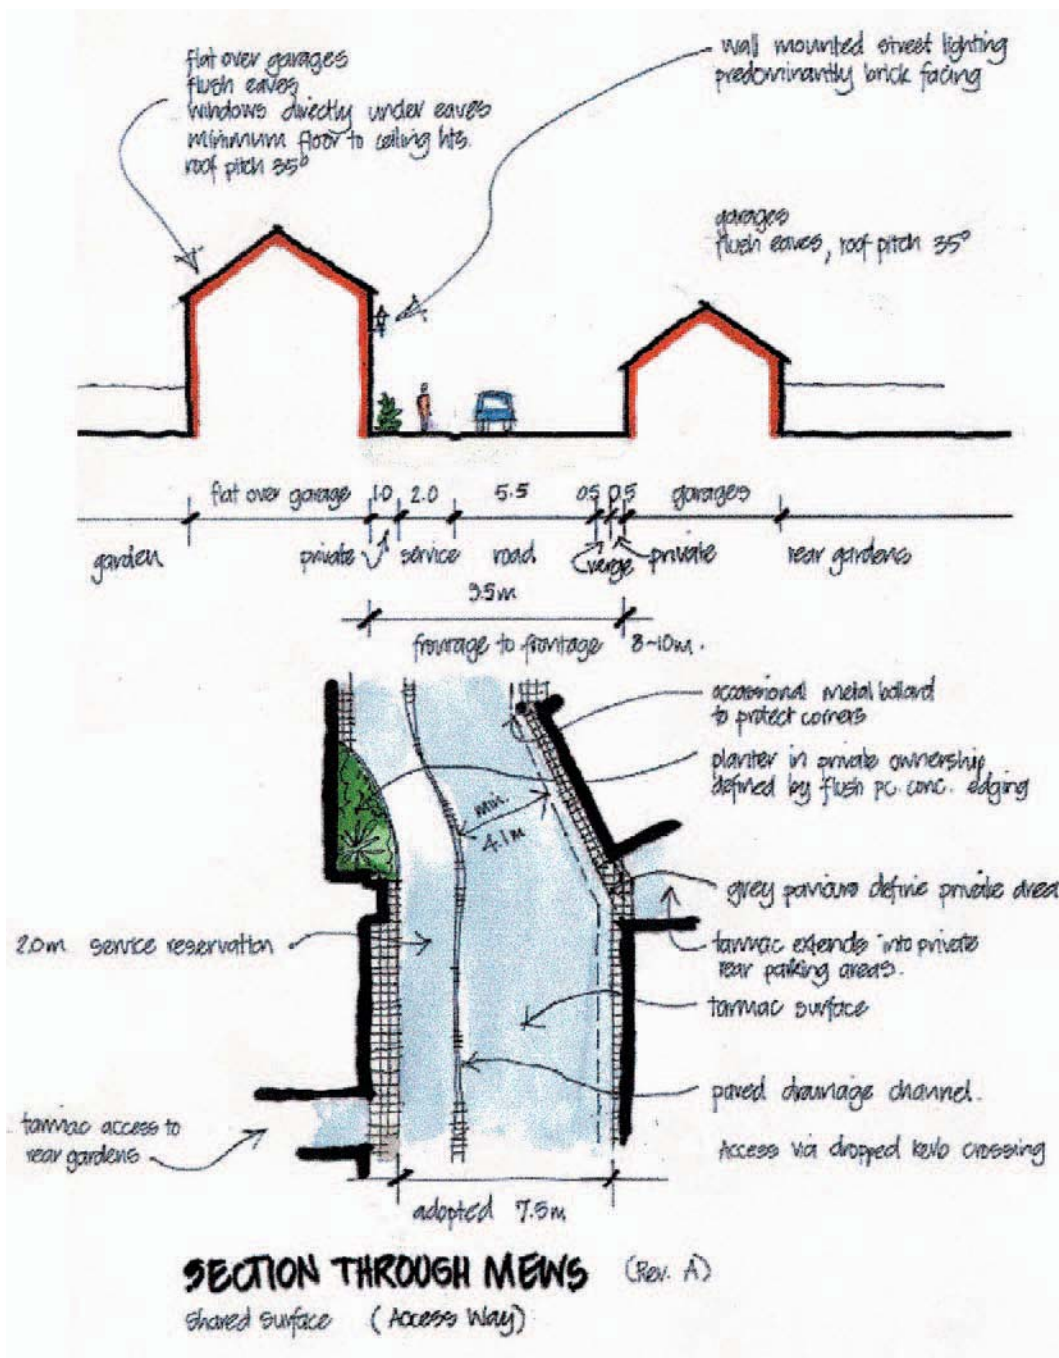 flat over garages
flush eaves
windows directly under eaves
minimum floor to ceiling hts.
roof pitch 35°
wall mounted street lighting
predominantly brick facing
garages
flush eaves, roof pitch 35°
flat over garage 1.0 2.0 5.5 0.5 0.5 garages
garden private service road verge private rear gardens
9.5m
frontage to frontage 8-10m.
occassional metal bollard
to protect corners
planter in private ownership
defined by flush pc. conc. edging
min.
4.1m
grey paviours define private area
2.0m service reservation
tarmac extends into private
rear parking areas.
tarmac surface
paved drainage channel.
tarmac access to
rear gardens
Access via dropped kerb crossing
adopted 7.5m
SECTION THROUGH MEWS (Rev. A)
shared surface (Access Way)